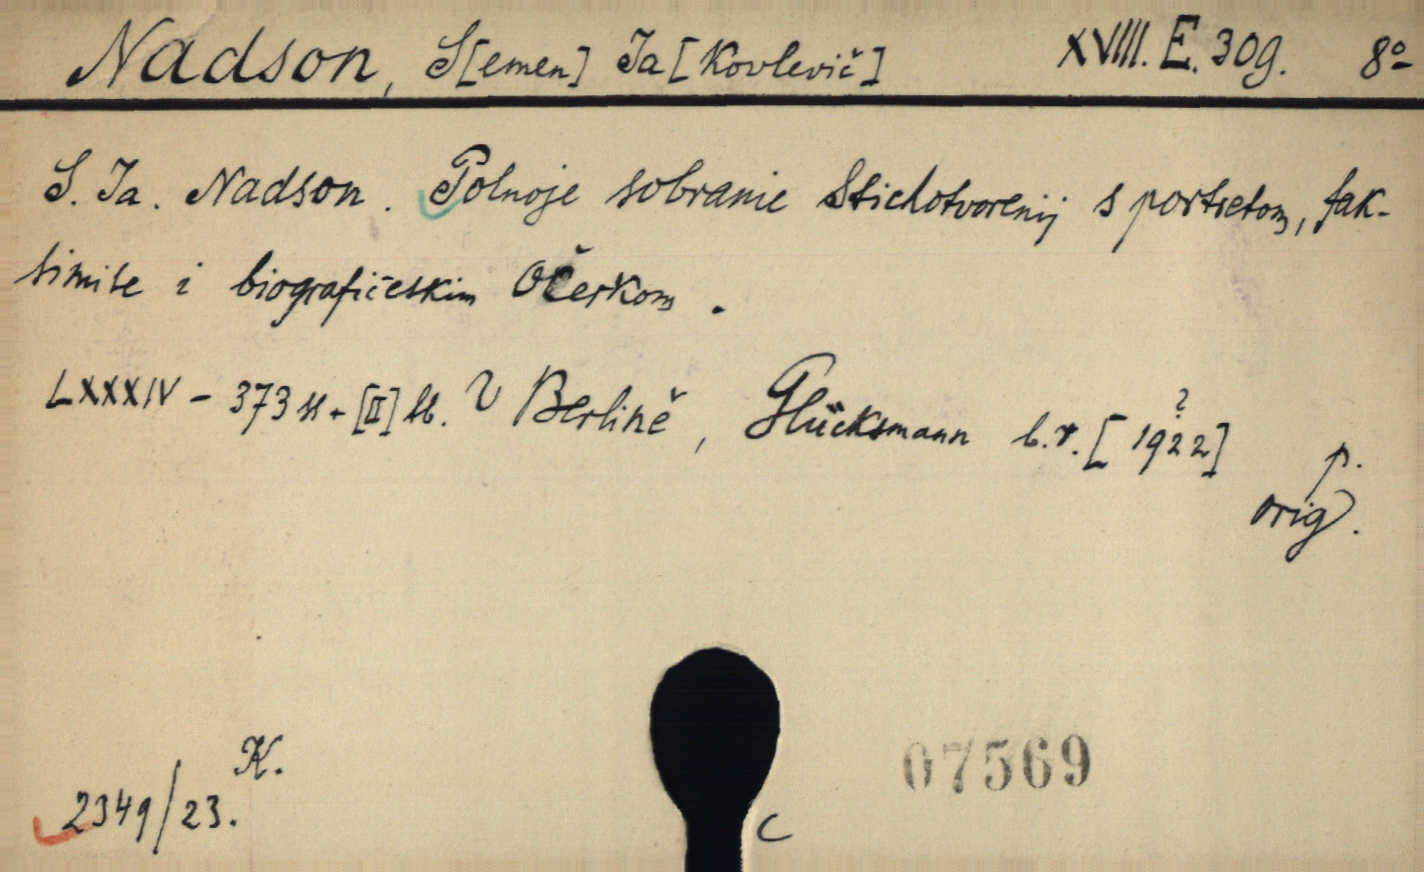 Nadson, S[emen] Ja[kovlevič] XVIII. E. 309. 8°
S. Ja. Nadson. Polnoje sobranie Stichotvorenij s portretom, fak-
simile i biografičeskim Očerkom.
LXXXIV - 373 st. + [II] st. V Berlině, Glücksmann b.r. [1922?]
p.
orig.
K.
2349/23.
07569
C